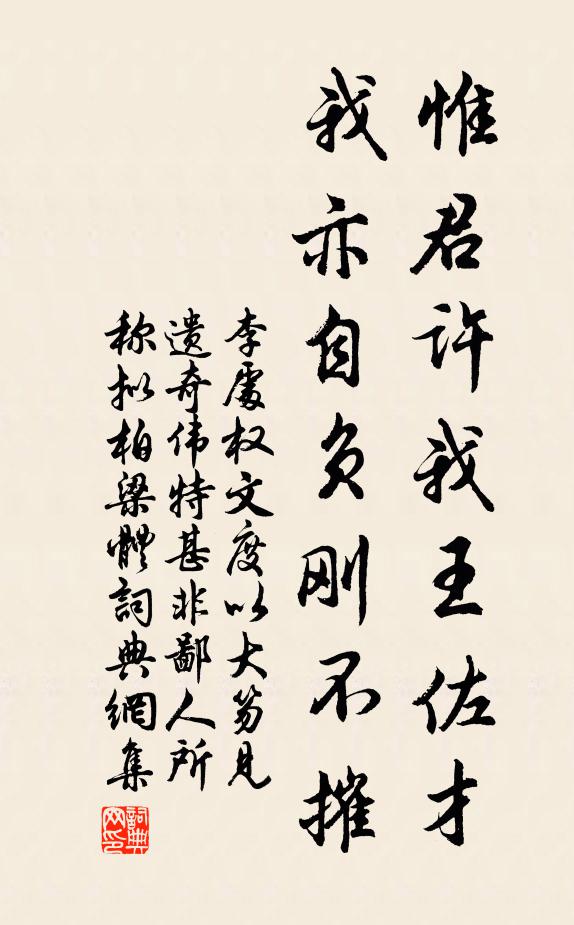 惟君许我王佐才
我亦自负刚不摧
李處权文度以大笏见
遗奇伟特甚非鄙人所
称拟柏梁體詞典網集
詞典网印